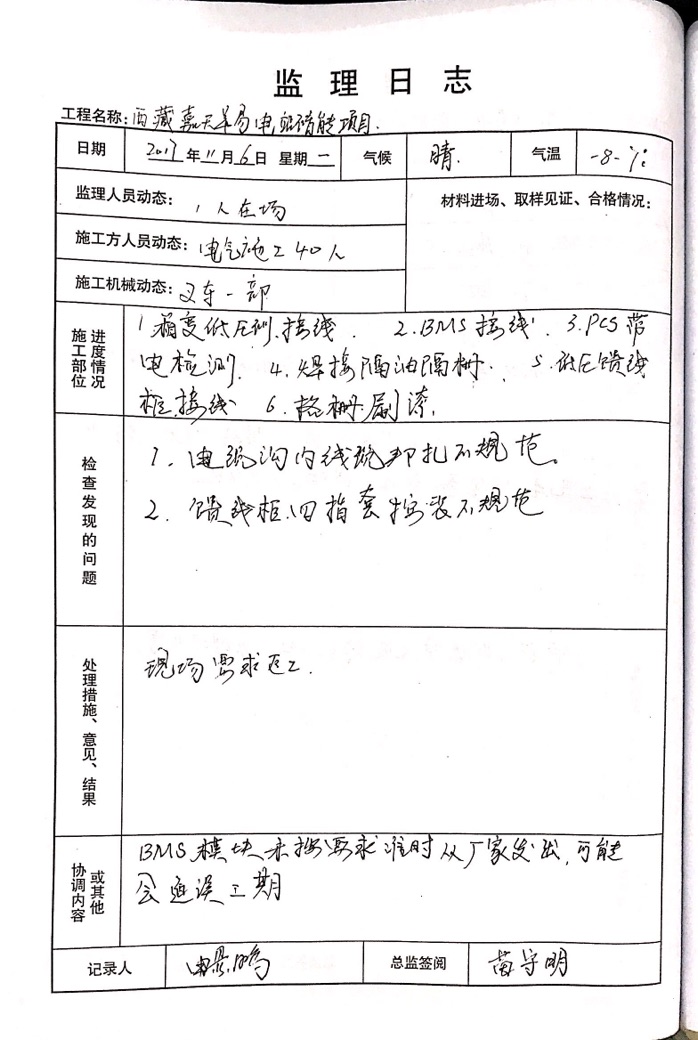 监理日志
工程名称：西藏嘉天羊易电站储能项目.
日期 2017年11月6日 星期一 气候 晴. 气温 -8-7℃
监理人员动态：1人在场 材料进场、取样见证、合格情况：
施工方人员动态：电气施工40人
施工机械动态：叉车一部
施工部位 进度情况
1.箱变低压侧接线. 2.BMS接线. 3.PCS带
电检测. 4.焊接隔油隔栅. 5.低压馈线
柜接线 6.格栅刷漆.
检查发现的问题
1、电缆沟内线缆绑扎不规范。
2、馈线柜四指套按装不规范
处理措施、意见、结果
现场要求返工.
协调内容 或其他
BMS模块未按要求准时从厂家发出，可能
会延误工期
记录人 总监签阅 苗守明